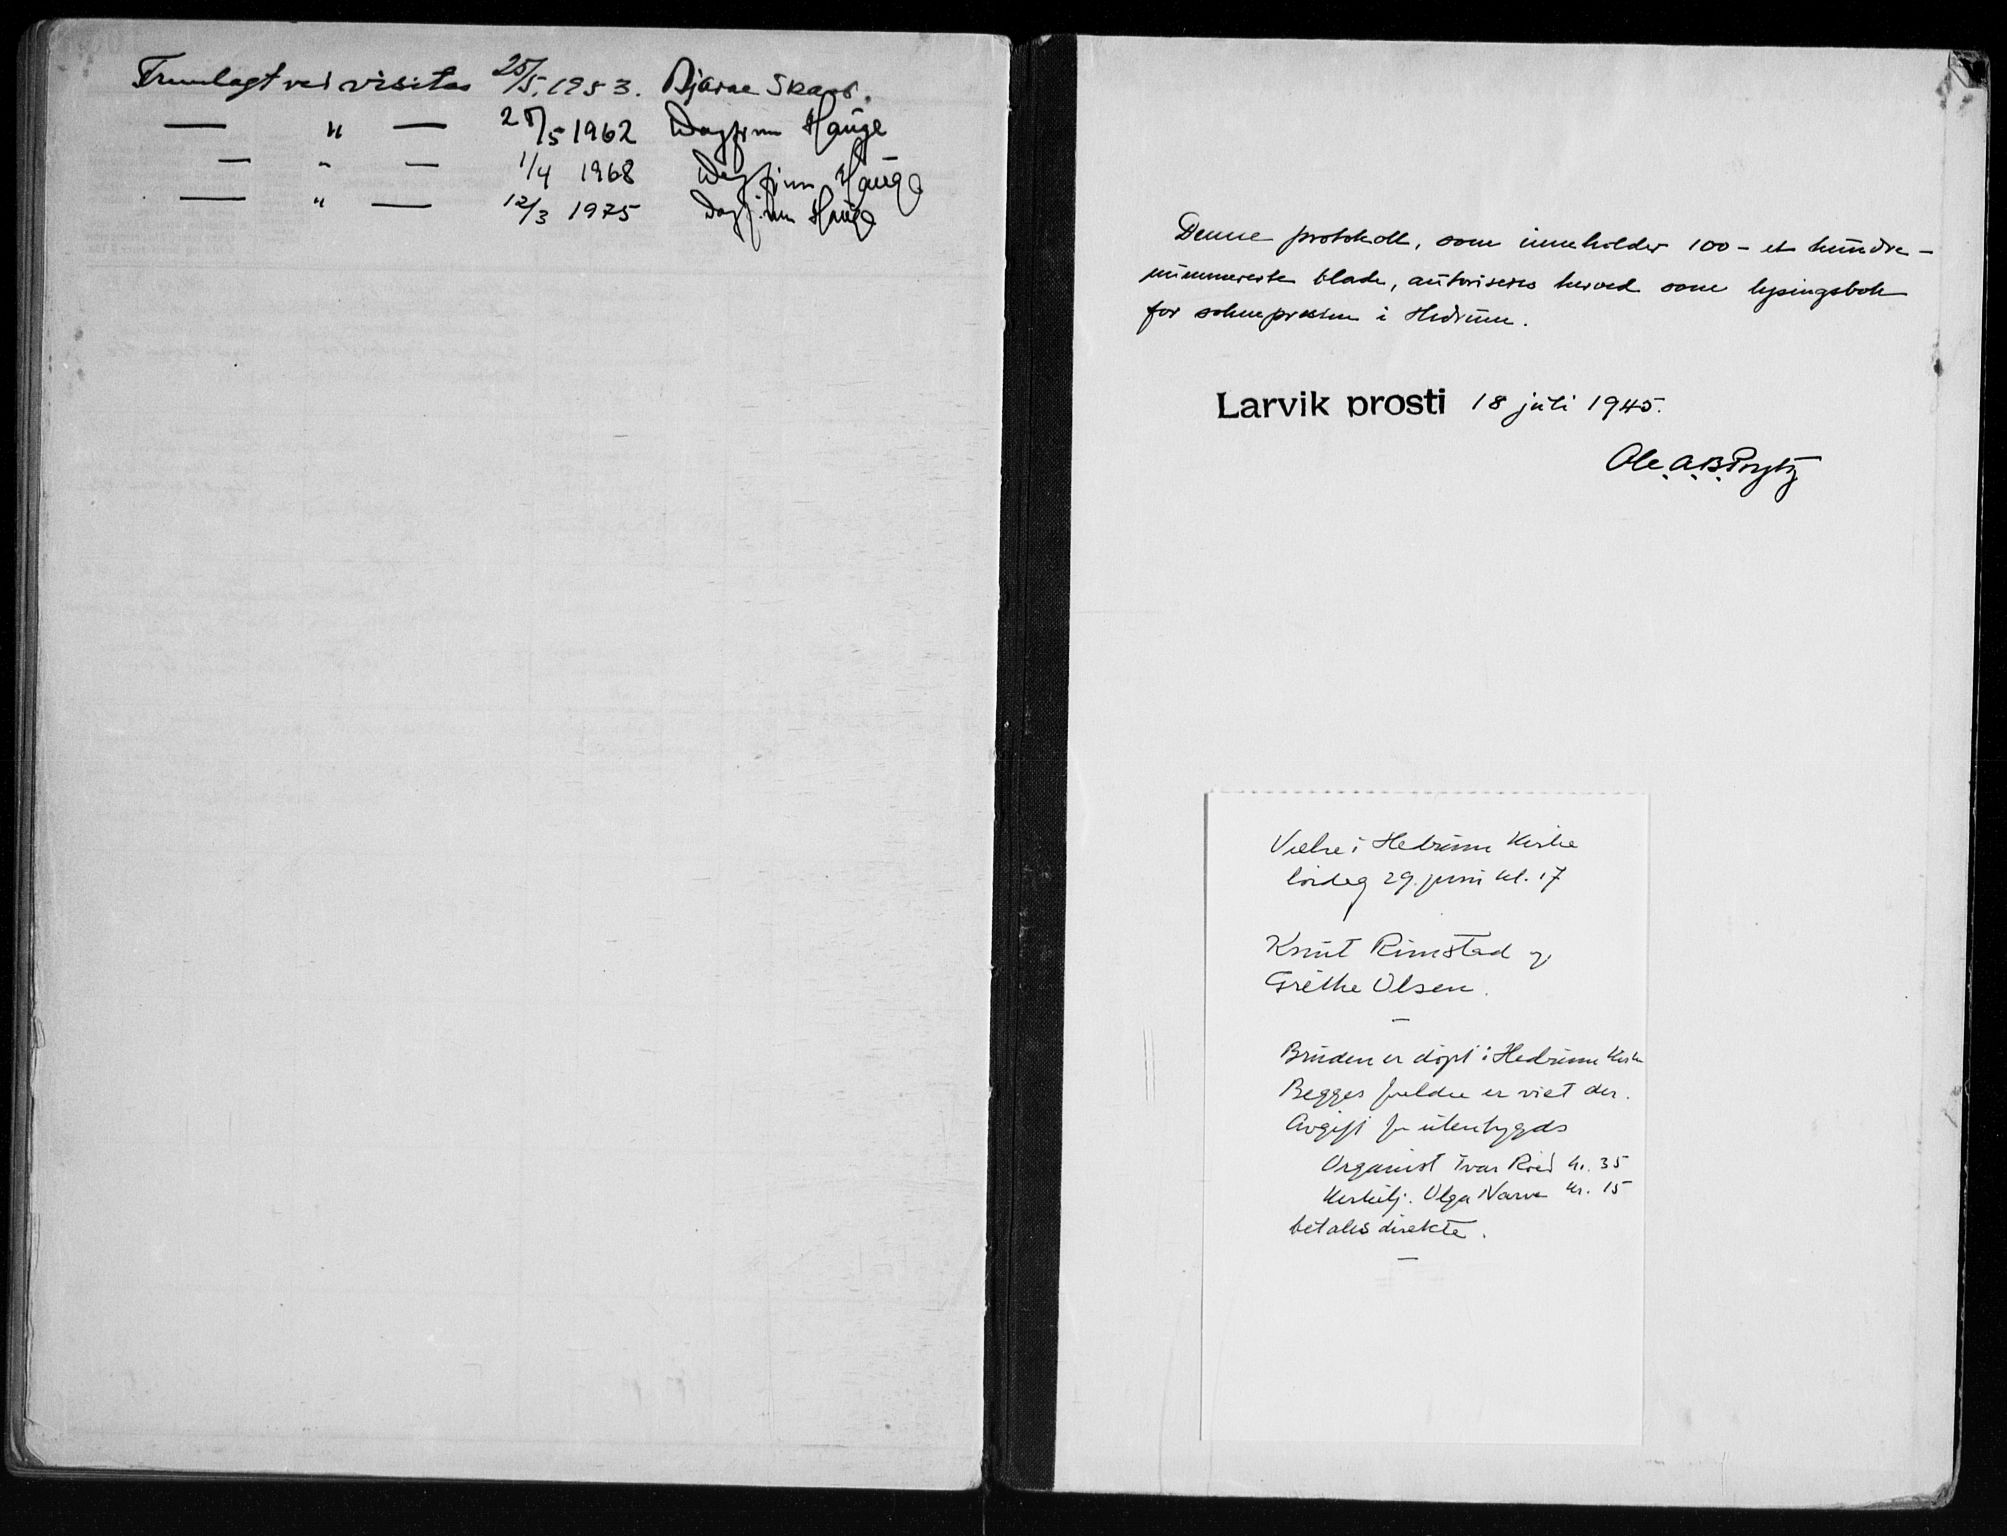 Fremlagt ved visitas 25/5. 1953. Bjarne Skard.
— " — 28/5 1962 Dagfinn Hauge
— " — 1/4 1968 Dagfinn Hauge
— " — 12/3 1975 Dagfinn Hauge
Denne protokoll, som inneholder 100 - et hundre -
nummererte blade, autoriseres herved som lysingsbok
for sokneprosten i Hedrum.
Larvik prosti 18 juli 1945.
Ole A. B. Prytz
Vielse i Hedrum Kirke
lördag 29. juni kl. 17
Knut Rimstad og
Gréthe Olsen.
—
Bruden er döpt i Hedrum Kirke
Begges foreldre er viet der.
Avgift for utenbygds
Organist Ivar Roed kr. 35
Kirketj. Olga Narve kr. 15
betales direkte.
—